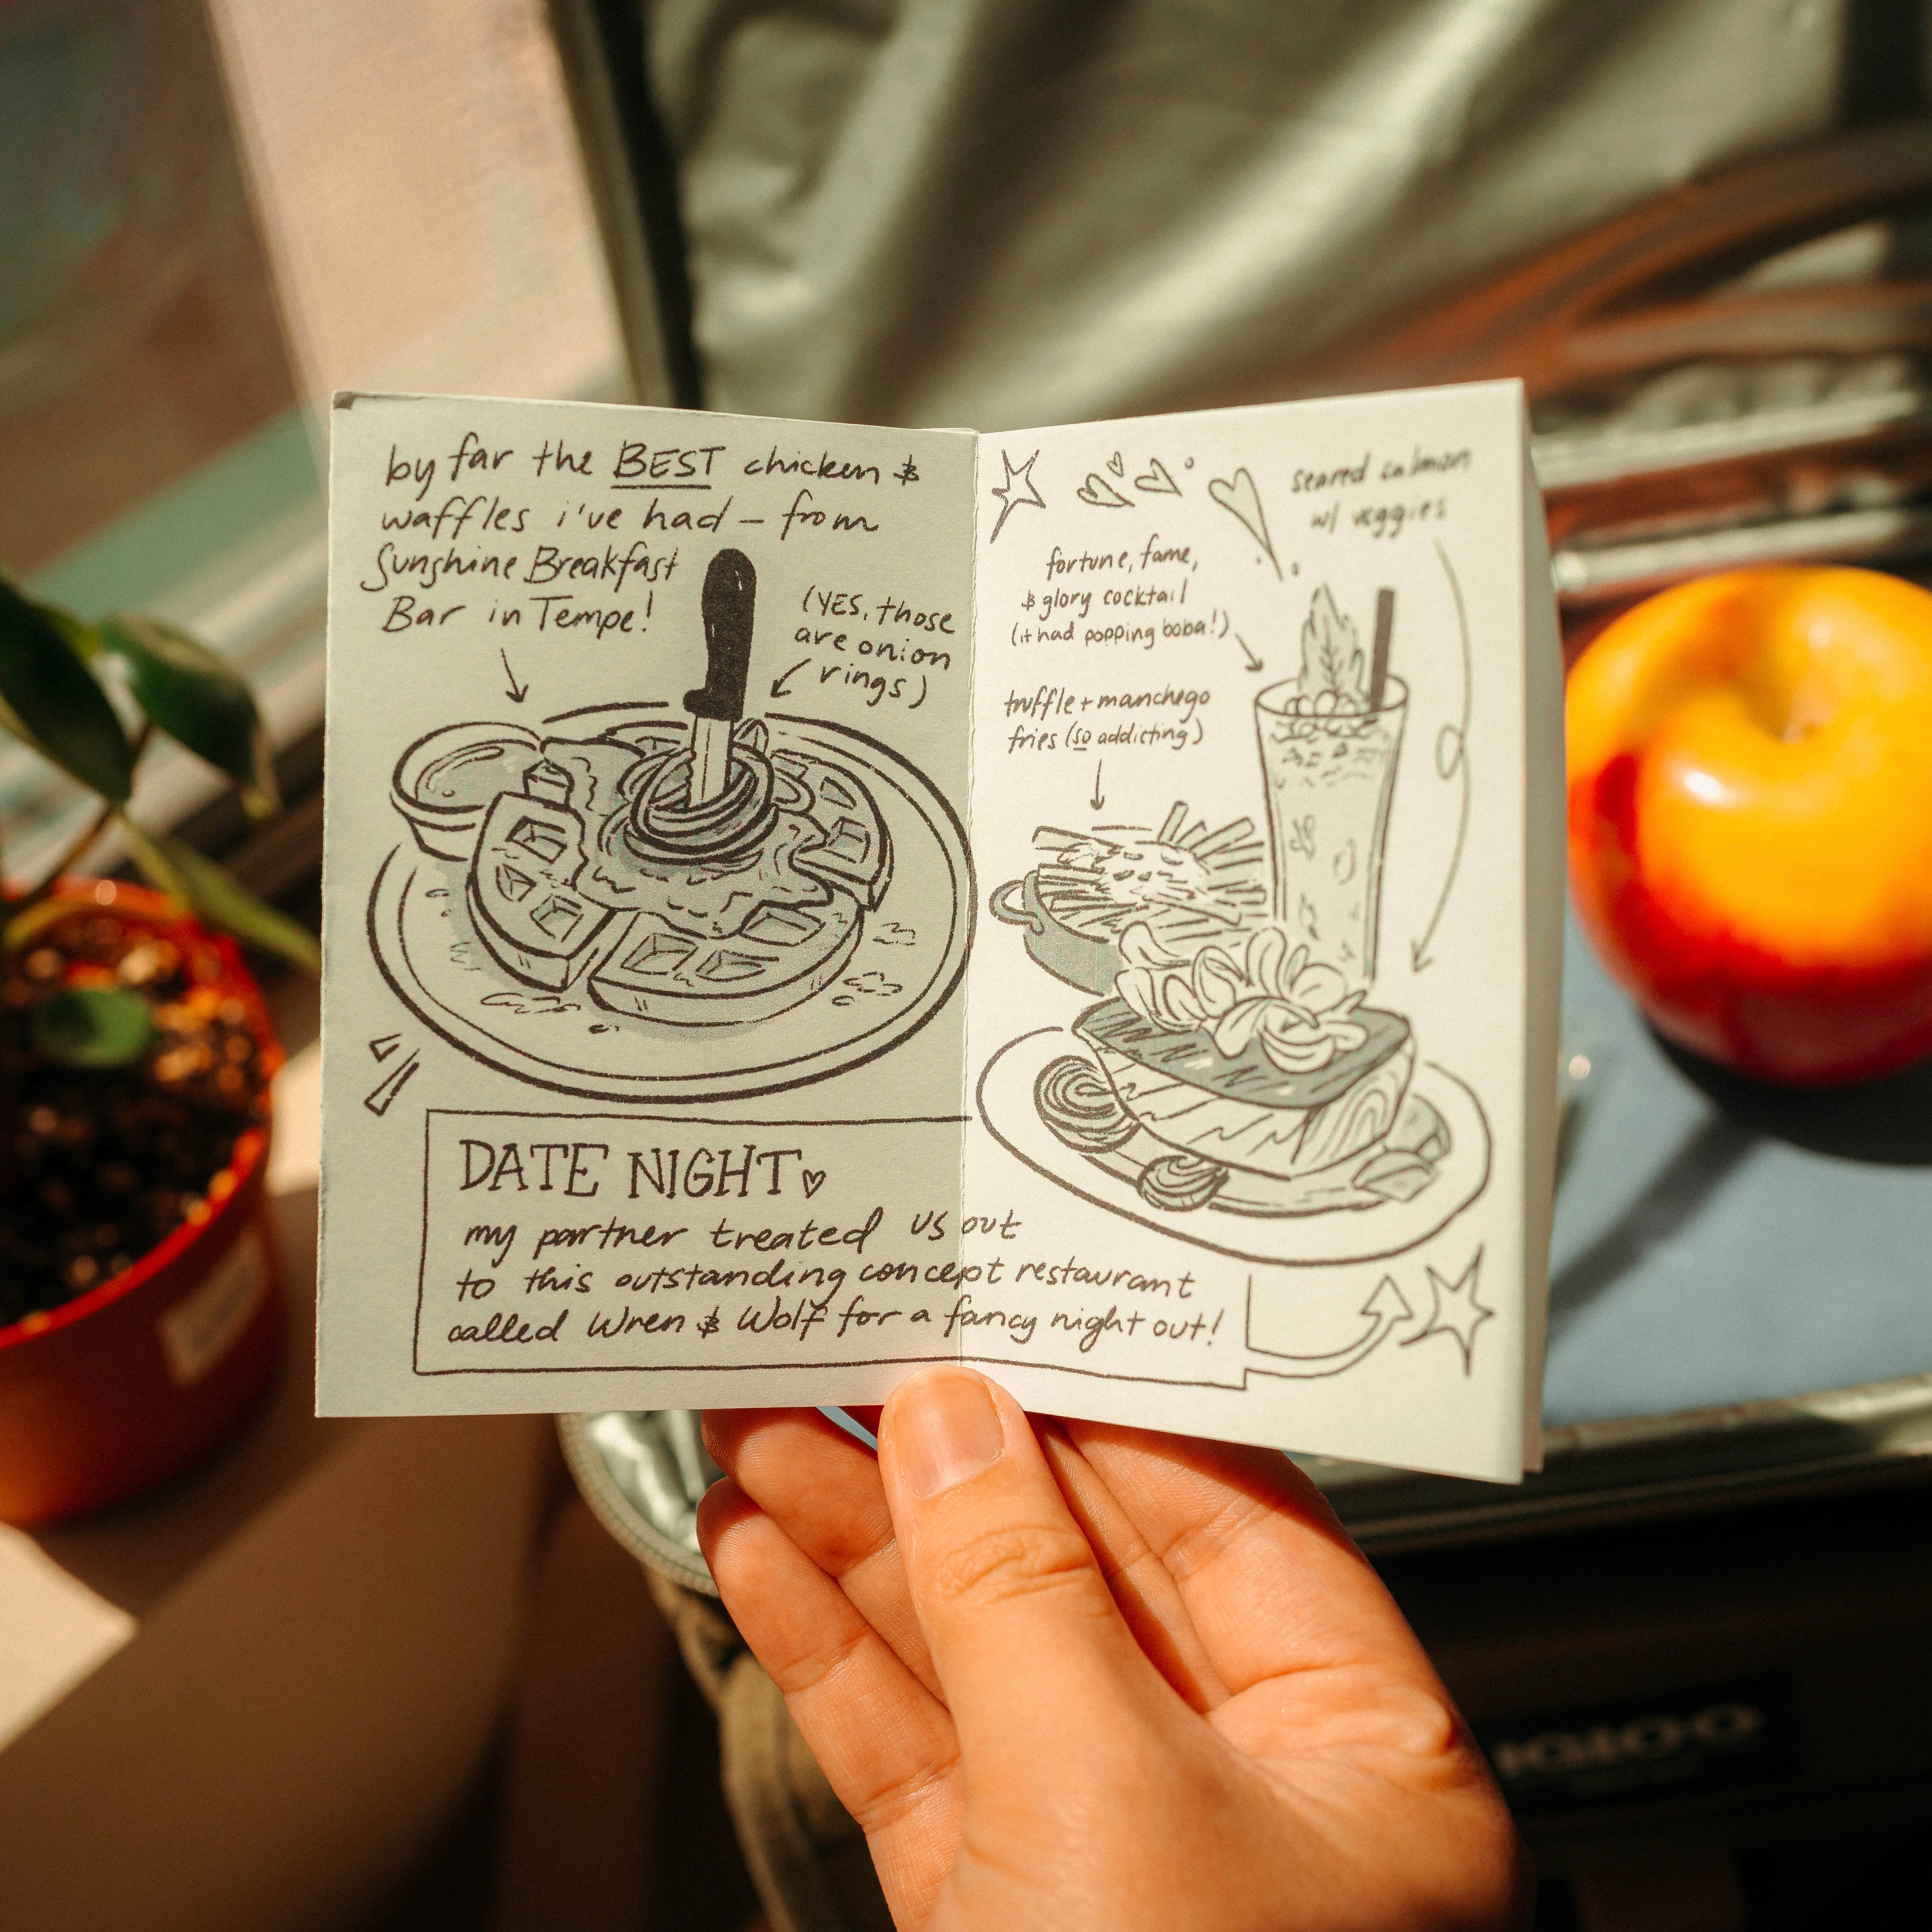 by far the BEST chicken &
waffles i've had – from
Sunshine Breakfast
Bar in Tempe!
(YES, those
are onion
rings)
DATE NIGHT
my partner treated us out
to this outstanding concept restaurant
called Wren & Wolf for a fancy night out!
seared salmon
w/ veggies
fortune, fame,
& glory cocktail
(it had popping boba!)
truffle + manchego
fries (so addicting)
IGLOO